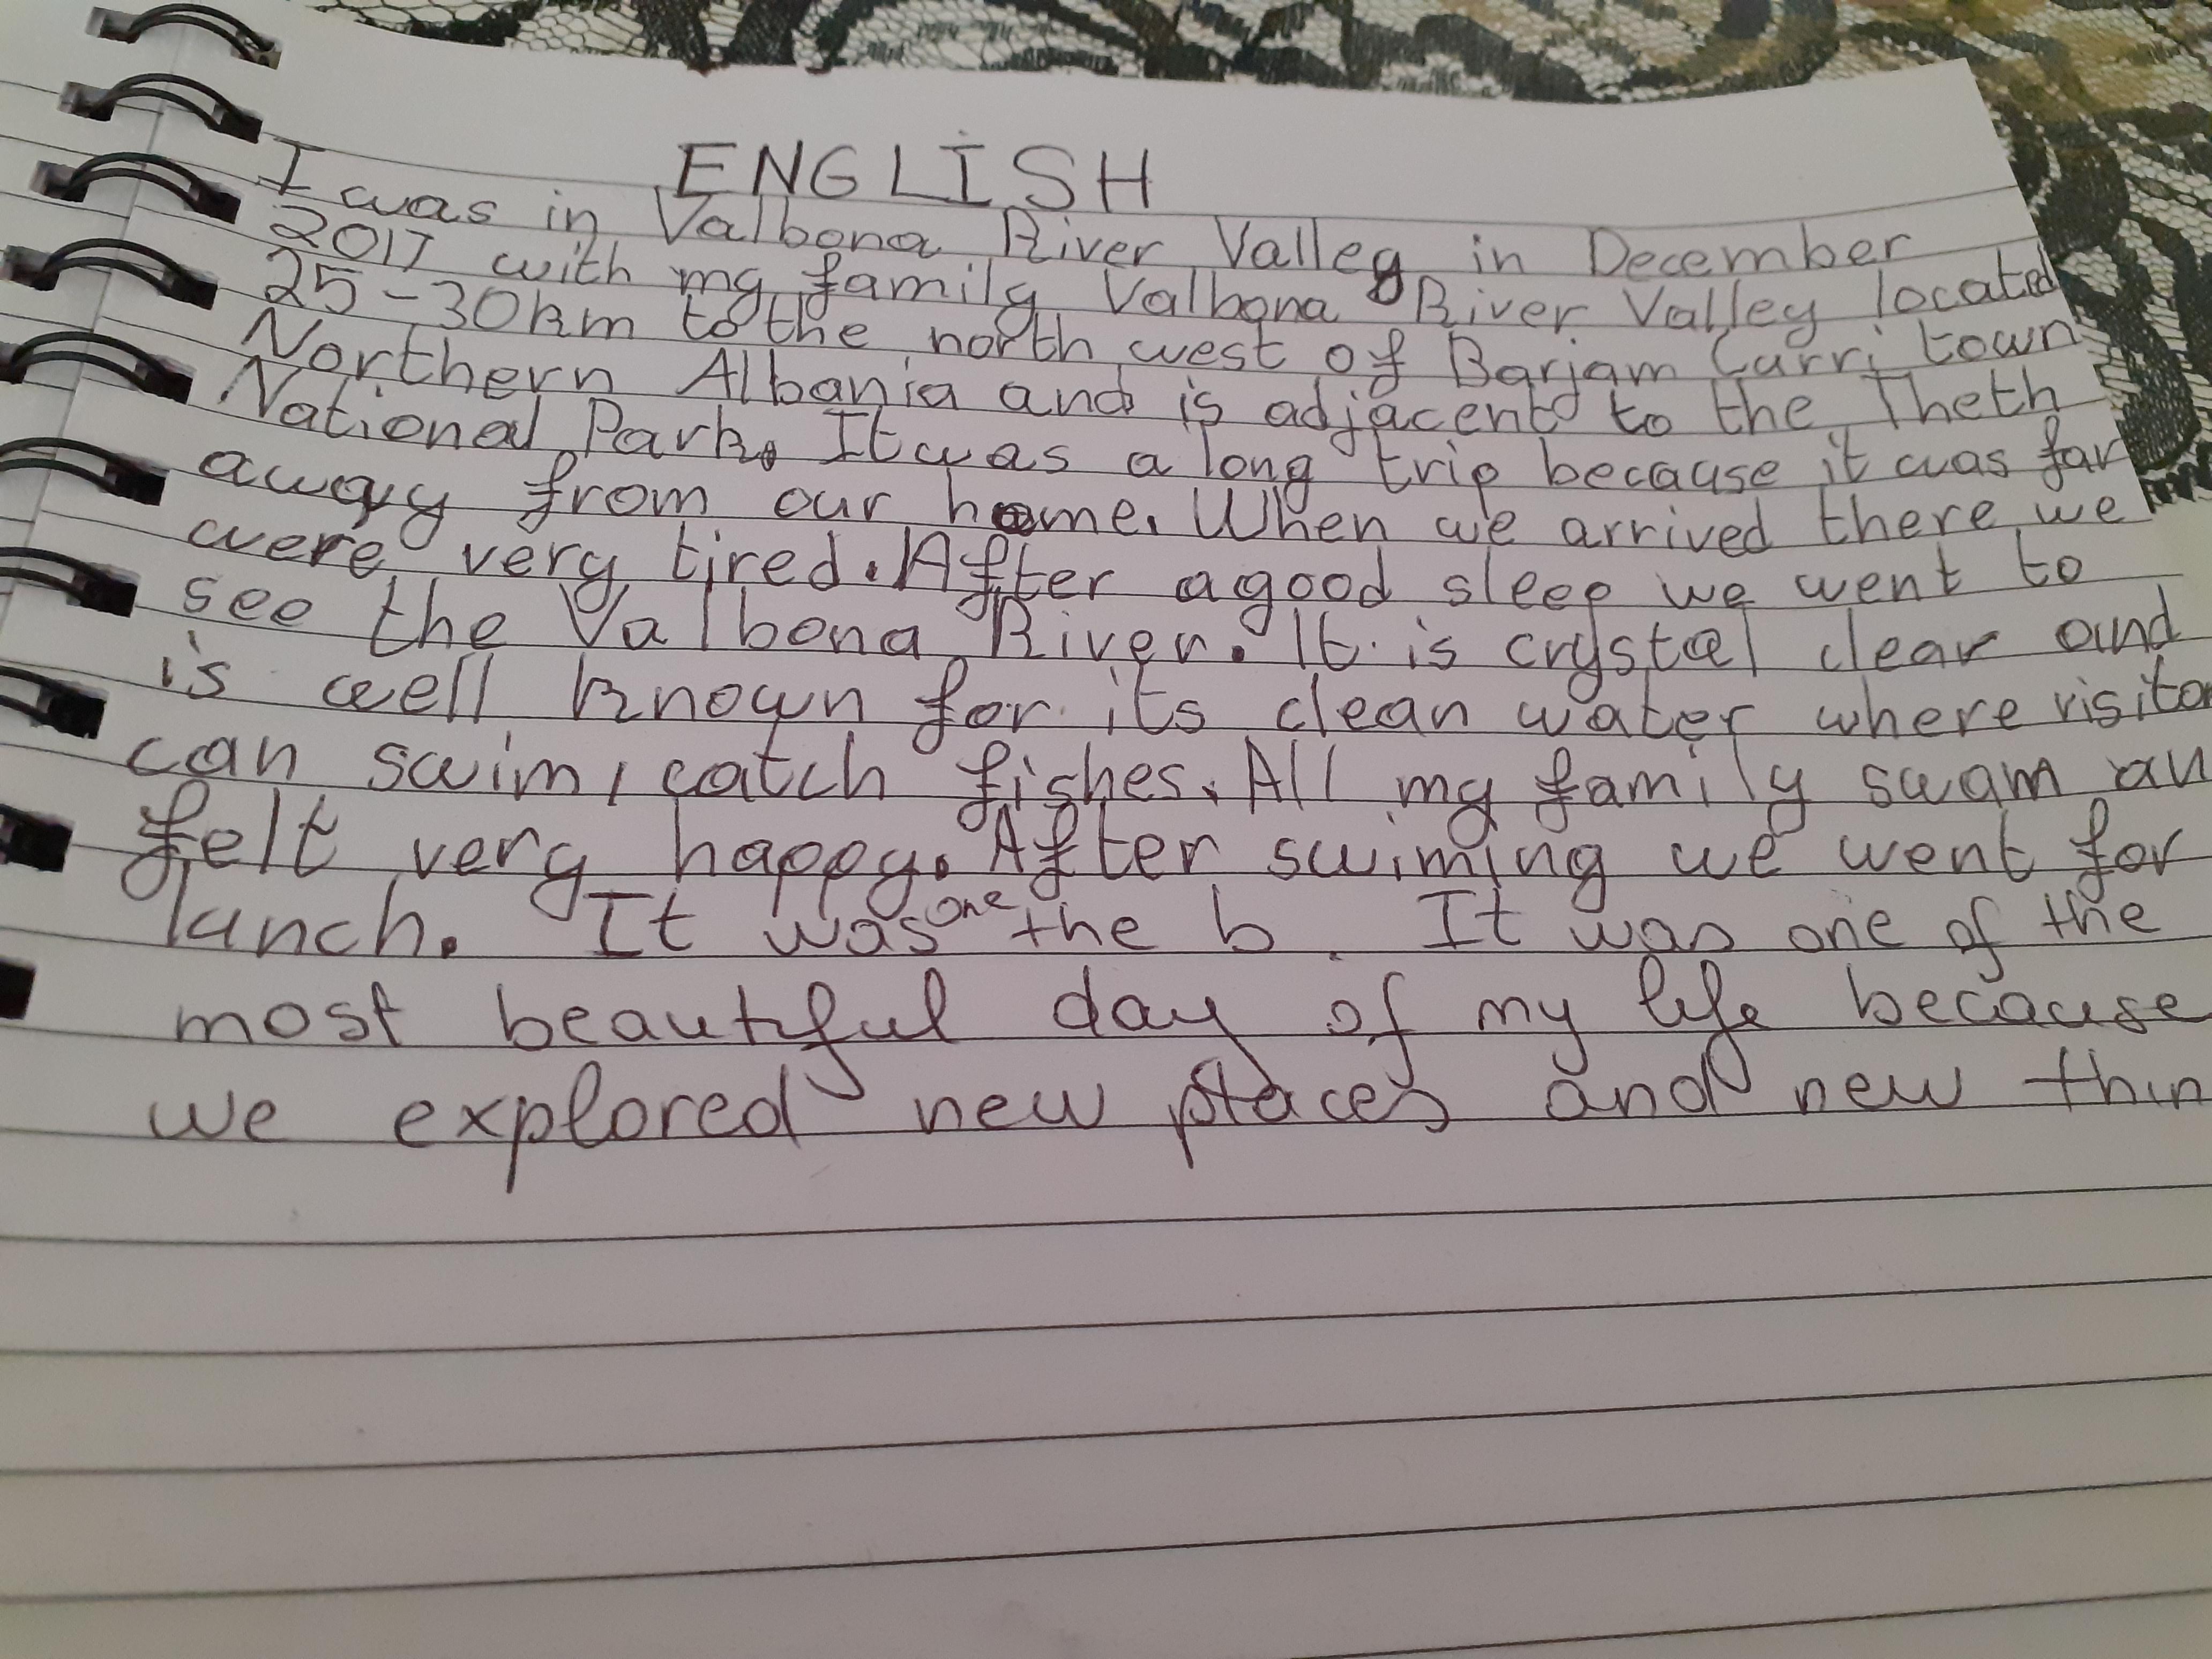 ENGLISH
I was in Valbona River Valley in December
2017 with my family Valbona River Valley located
25-30km to the north west of Barjam Curri town
Northern Albania and is adjacent to the Theth
National Park. It was a long trip because it was far
away from our home. When we arrived there we
were very tired. After a good sleep we went to
see the Valbona River. It is crystal clear and
is well known for its clean water where visito
can swim, catch fishes. All my family swam an
felt very happy. After swiming we went for
lunch. It was one the b It was one of the
most beautiful day of my life because
we explored new places and new thin